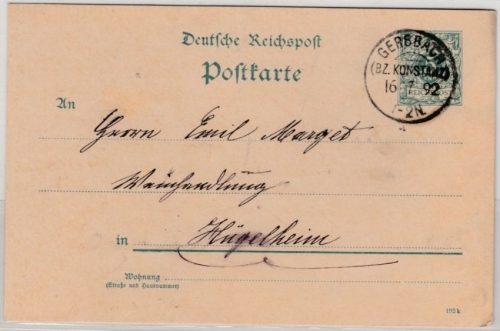 Deutsche Reichspost
Postkarte
GERSBACH
(BZ. KONSTANZ)
16 7 92
1-2N.
An
Herrn Emil Marget
Weinhandlung
in Hügelheim
Wohnung
(Straße und Hausnummer)